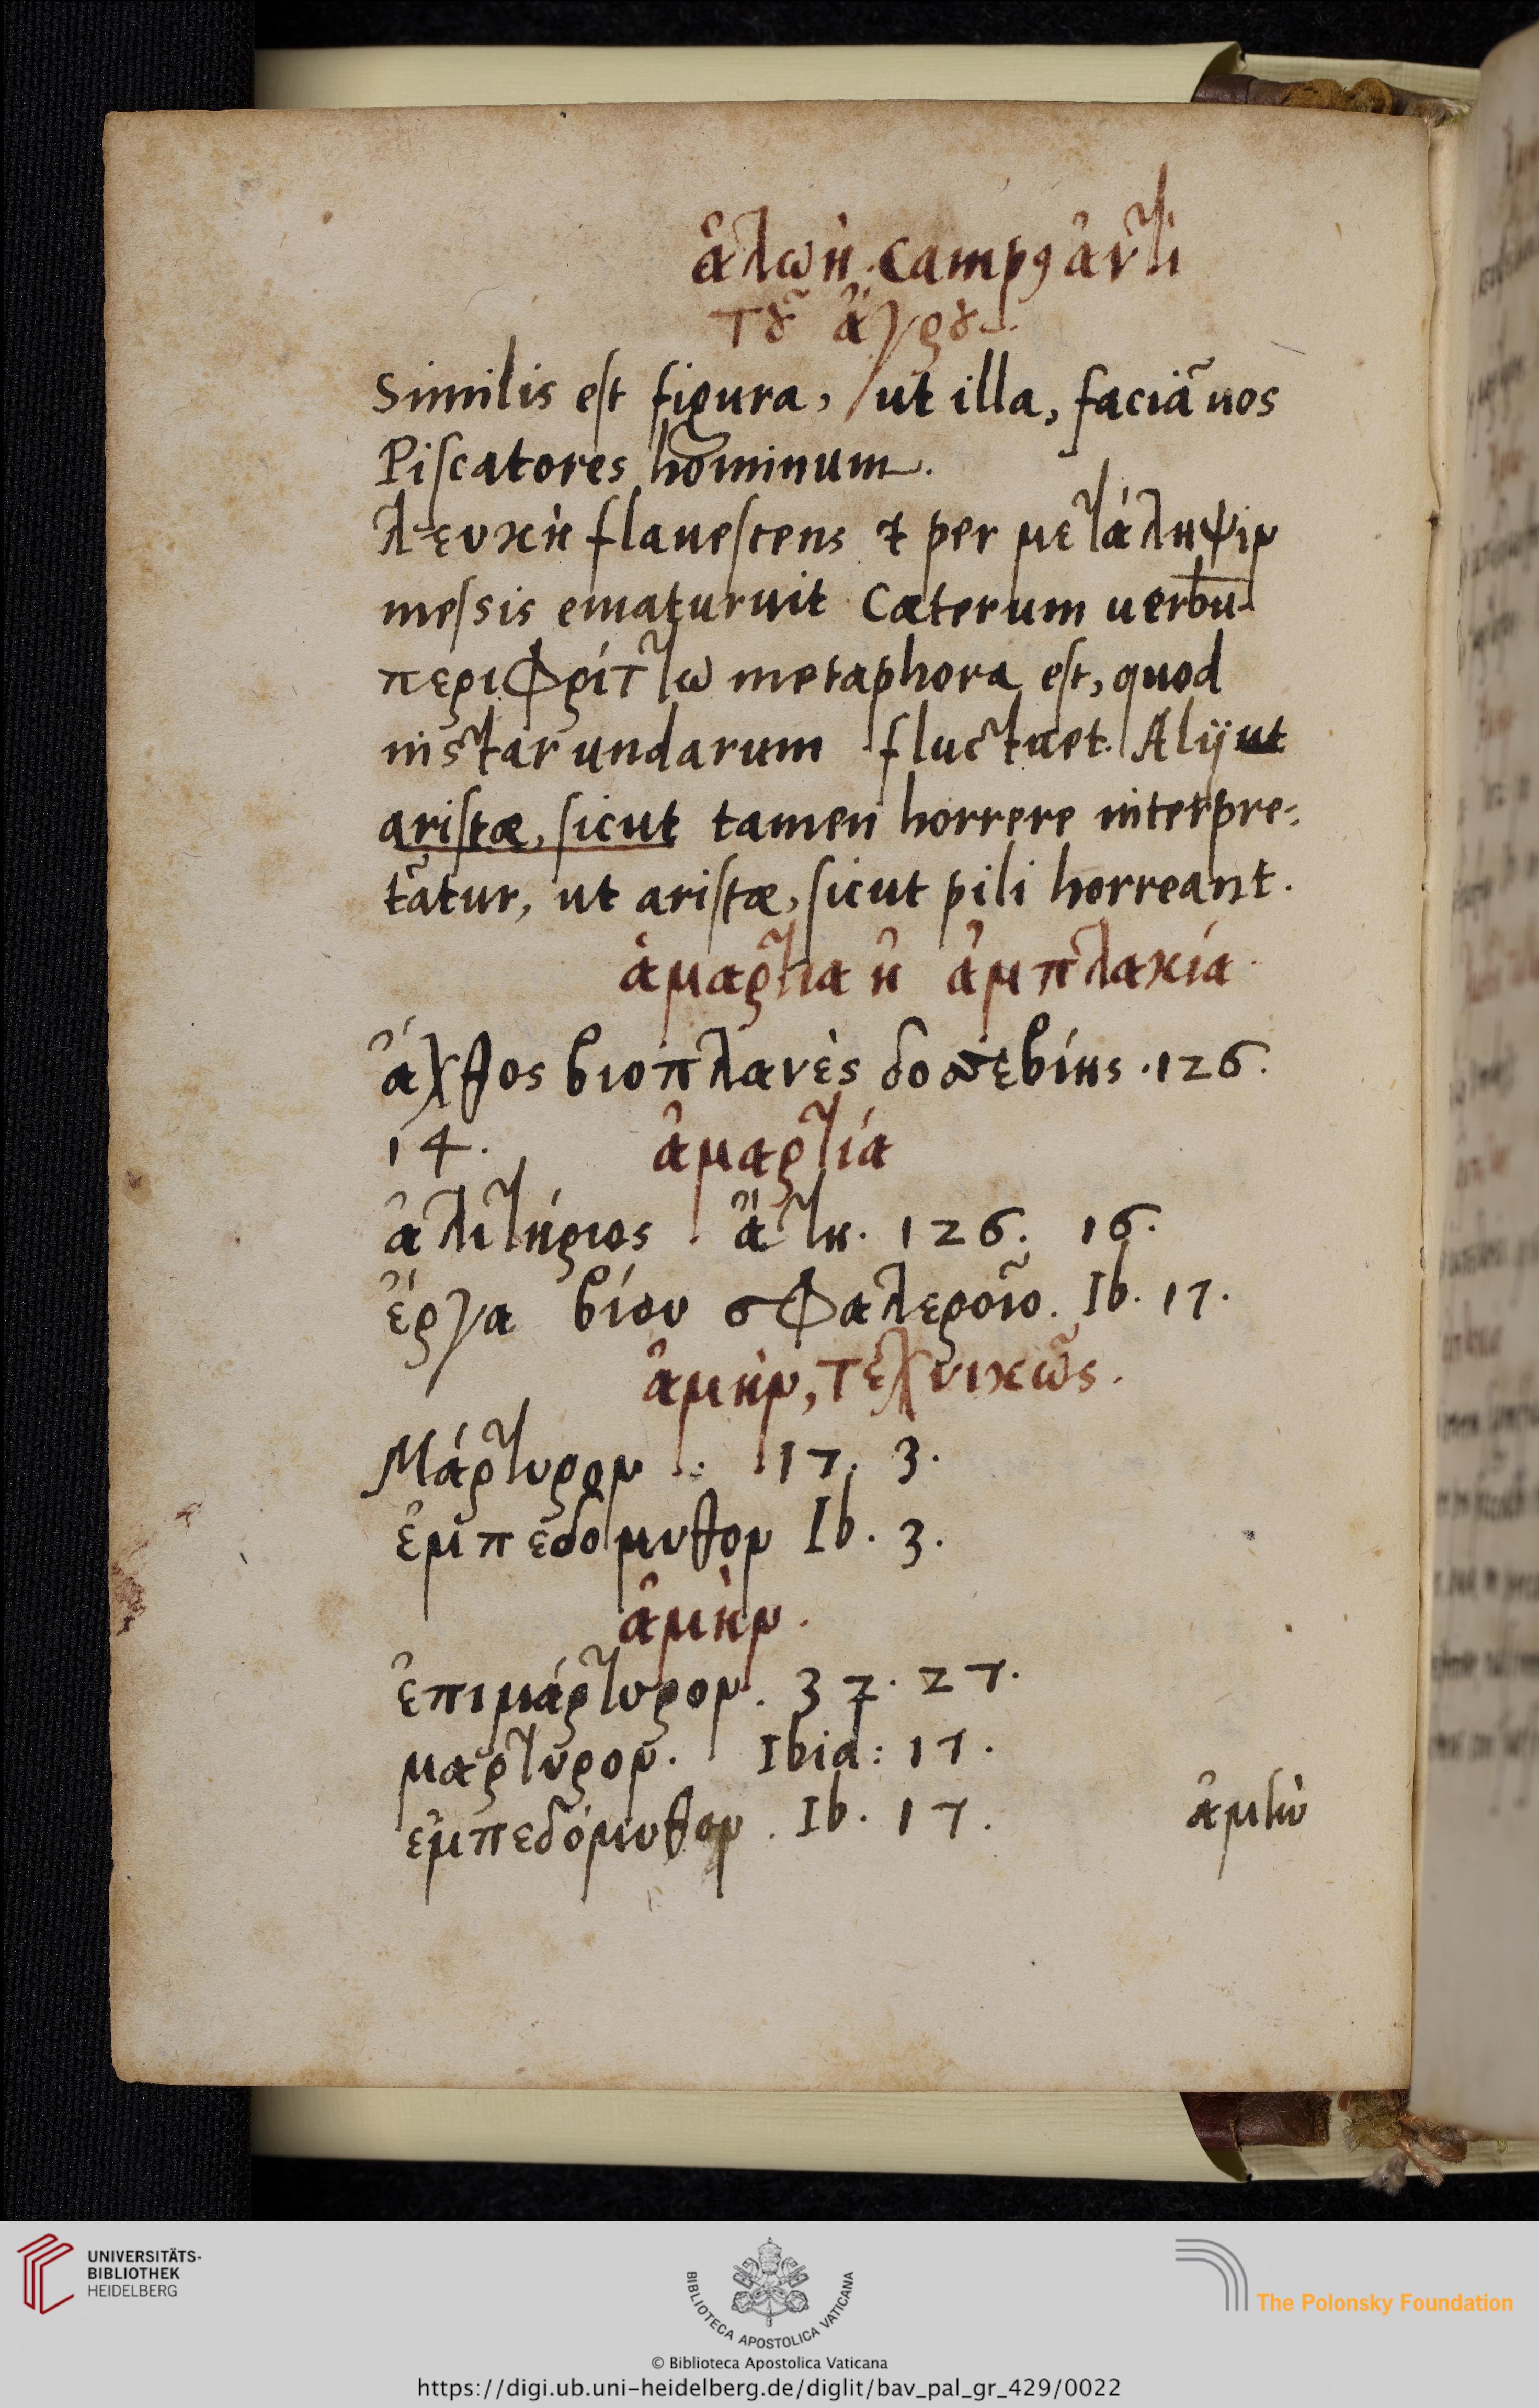 ἀλωὴ. campꝰ ἀντὶ
τοῦ ἀγροῦ.
Similis est figura, ut illa, faciã uos
Piscatores hominum.
λευκὴ flauescens & per μετάληψιν
messis ematuruit Cæterum uerbū
περιφρίττω metaphora est, quod
instar undarum fluctuet. Alij ut
aristæ, sicut tamen horrere interpre-
tãtur, ut aristæ, sicut pili horreant.
ἁμαρτία ἢ ἀμπλακία.
ἄχθος βιοπλανὲς 126.
14. ἁμαρτία
ἀλιτήριος ἄτη. 126. 16.
ἔργα βίου σφαλεροῖο. Ib. 17.
ἀμὴν, τεχνικῶς.
Μάρτυρον 17. 3.
ἐμπεδομυθον Ib. 3.
ἀμὴν.
ἐπιμάρτυρον. 37. 27.
μαρτυρον. Ibid: 17.
ἐμπεδόμυθον. Ib. 17. ἀμὴν
UNIVERSITÄTS-
BIBLIOTHEK
HEIDELBERG
BIBLIOTECA APOSTOLICA VATICANA
The Polonsky Foundation
© Biblioteca Apostolica Vaticana
https://digi.ub.uni-heidelberg.de/diglit/bav_pal_gr_429/0022